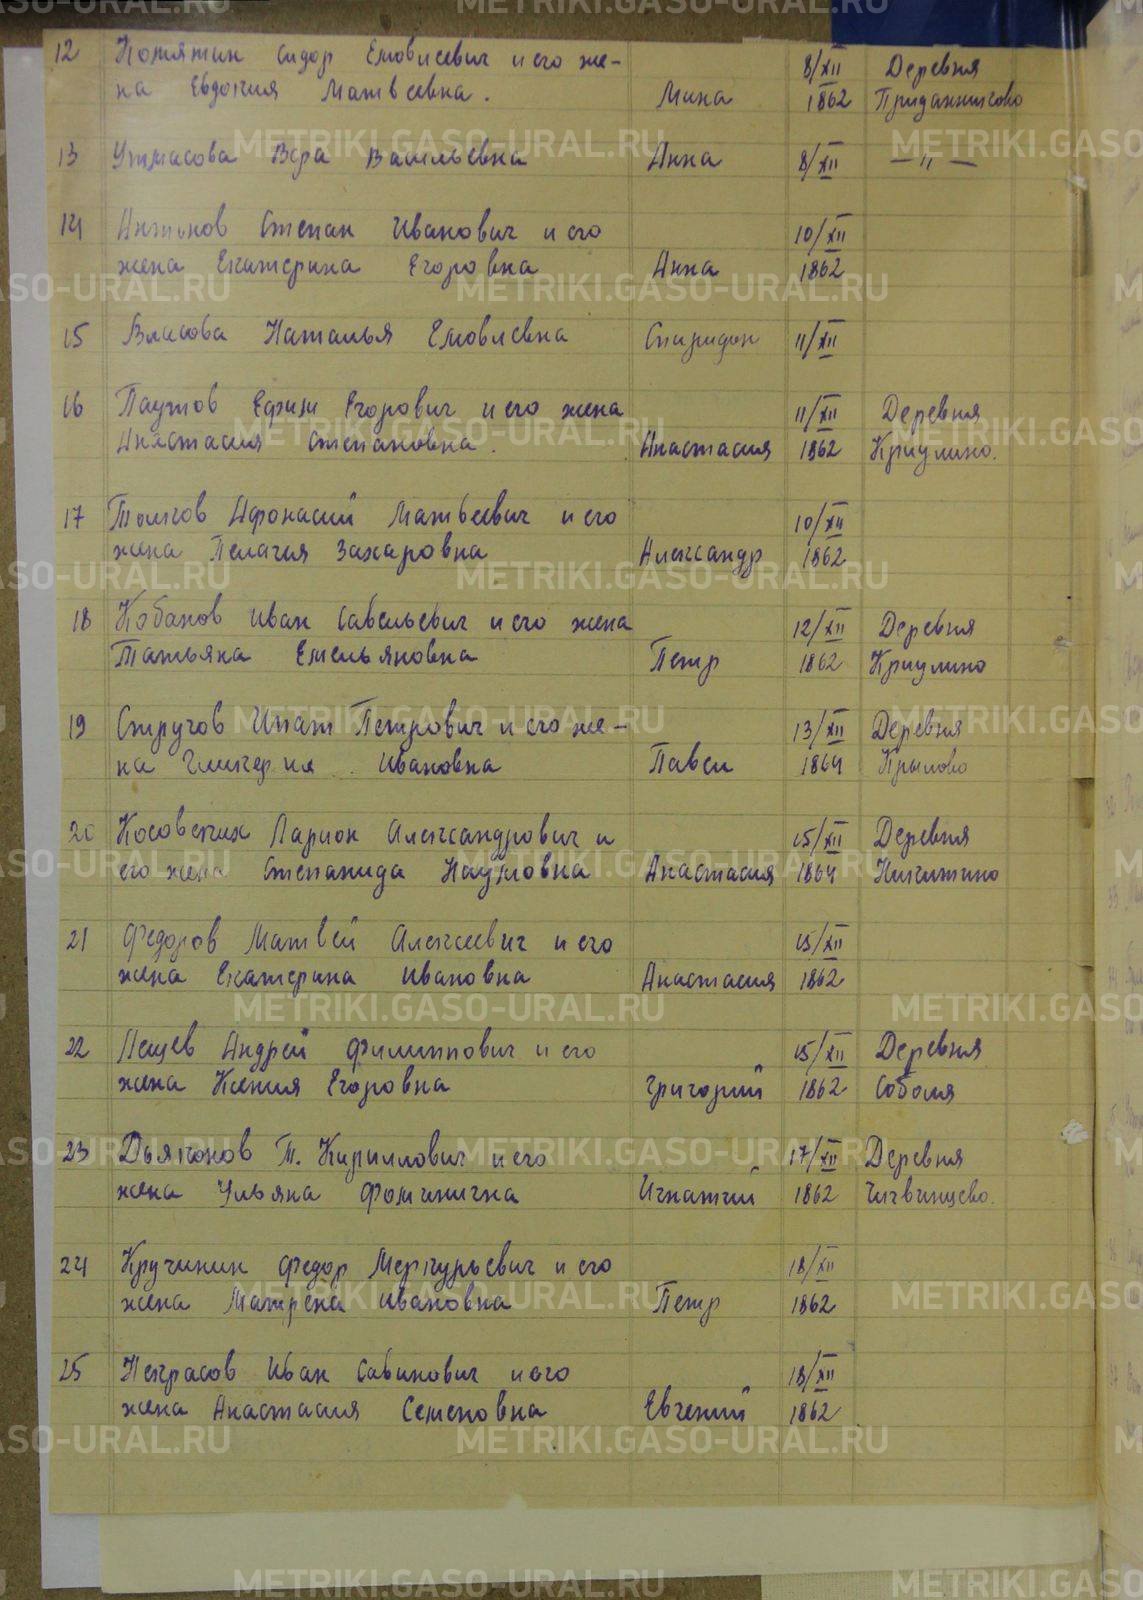 12 Копятин Сидор Емовисевич и его же- 8/XII Деревня
на Евдокия Матвеевна. Мина 1862 Приданниково
13 Утмасова Вера Васильевна Анна 8/XII —〃—
14 Антонов Степан Иванович и его 10/XII
жена Екатерина Егоровна Анна 1862
15 Власова Наталья Емовлевна Спиридон 11/XII
16 Паутов Ефим Егорович и его жена 11/XII Деревня
Анастасия Степановна. Анастасия 1862 Криулино.
17 Толстов Афонасий Матвеевич и его 10/XII
жена Пелагия Захаровна Александр 1862
18 Кобанов Иван Савельевич и его жена 12/XII Деревня
Татьяна Емельяновна Петр 1862 Криулино
19 Стругов Ипат Петрович и его же- 13/XII Деревня
на Гликерия Ивановна Павел 1864 Крылово
20 Косовских Ларион Александрович и 15/XII Деревня
его жена Степанида Наумовна Анастасия 1864 Никитино
21 Федоров Матвей Алексеевич и его 15/XII
жена Екатерина Ивановна Анастасия 1862
22 Пещев Андрей Филиппович и его 15/XII Деревня
жена Ксения Егоровна Григорий 1862 Соболя
23 Дьяконов Т. Кириллович и его 17/XII Деревня
жена Ульяна Фоминична Игнатий 1862 Чигвинцево.
24 Кручинин Федор Меркурьевич и его 18/XII
жена Матрена Ивановна Петр 1862
25 Некрасов Иван Савинович и его 18/XII
жена Анастасия Семеновна Евгений 1862
METRIKI.GASO-URAL.RU